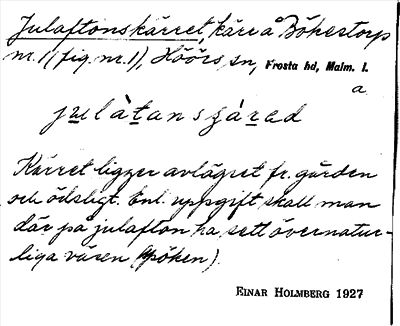 Julaftonskärret, kärr å Böhestorp
nr. 1 (fig. nr. 1), Höörs sn, Frosta hd, Malm. l.
a
julàtansʃárad
Kärret ligger avlägset fr. gården
och ödsligt. Enl. uppgift skall man
där på julafton ha sett övernatur-
liga väsen (spöken).
EINAR HOLMBERG 1927